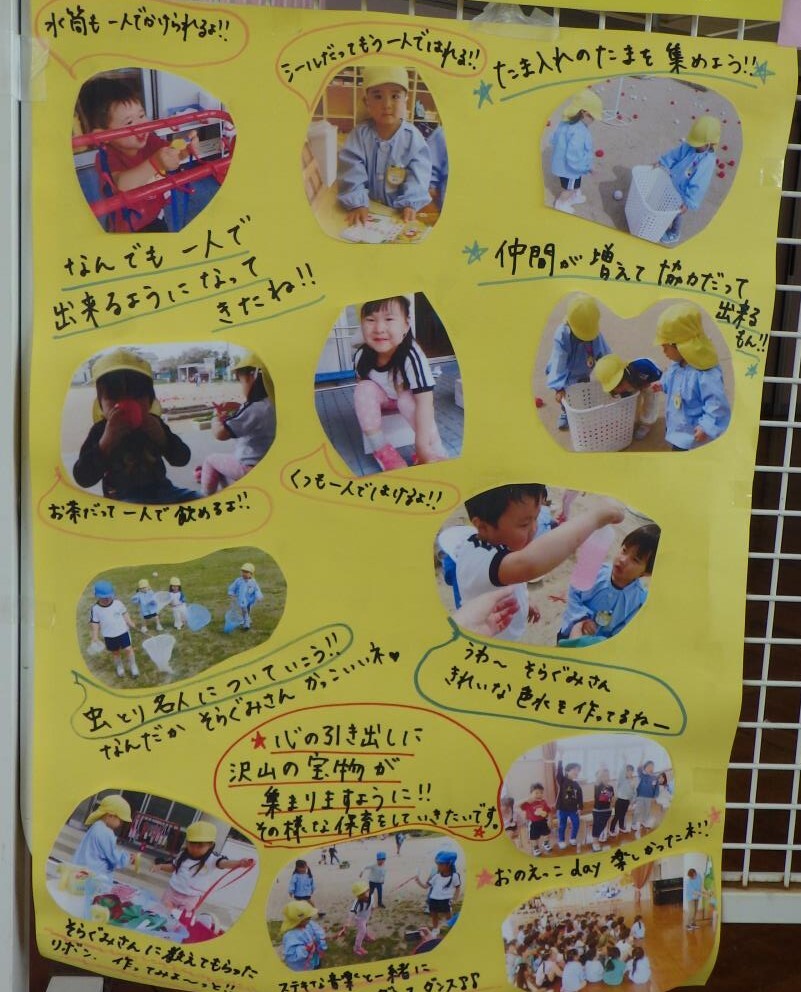 水筒も一人でかけられるよ!!
シールだってもう一人ではれる!!
★たま入れのたまを集めよう!!★
なんでも一人で
出来るようになって
きたね!!
★仲間が増えて協力だって
出来る
もん!!★
お茶だって一人で飲めるよ!!
くつも一人ではけるよ!!
虫とり名人についていこう!!
なんだかそらぐみさんかっこいいネ♥
うわ〜そらぐみさん
きれいな色水を作ってるねー
★心の引き出しに
沢山の宝物が
集まりますように!!
その様な保育をしていきたいです。★
★おのえっこday楽しかったネ!!★
そらぐみさんに教えてもらった
リボン、作ってみよ〜っと!!
ステキな音楽と一緒に
ダンス♪♪